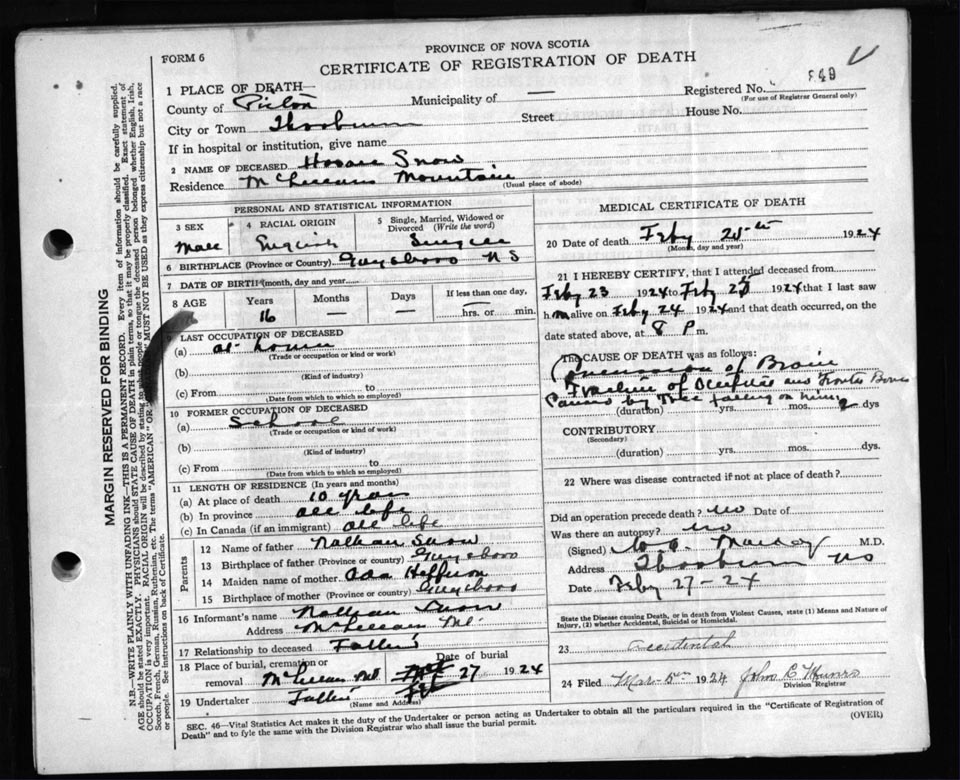 PROVINCE OF NOVA SCOTIA
FORM 6
CERTIFICATE OF REGISTRATION OF DEATH
849
1 PLACE OF DEATH—
County of Pictou Municipality of —
Registered No.
(For use of Registrar General only)
City or Town Thorburn Street House No.
If in hospital or institution, give name
2 NAME OF DECEASED Horace Snow
Residence McLellans Mountain
(Usual place of abode)
PERSONAL AND STATISTICAL INFORMATION
3 SEX Male
4 RACIAL ORIGIN English
5 Single, Married, Widowed or Divorced (Write the word) Single
6 BIRTHPLACE (Province or Country) Guysboro N S
7 DATE OF BIRTH (month, day and year)
8 AGE Years Months Days If less than one day,
16 — — hrs. or min.
9 LAST OCCUPATION OF DECEASED
(a) at home
(Trade or occupation or kind of work)
(b)
(Kind of industry)
(c) From to
(Date from which to which so employed)
10 FORMER OCCUPATION OF DECEASED
(a) School
(Trade or occupation or kind of work)
(b)
(Kind of industry)
(c) From to
(Date from which to which so employed)
11 LENGTH OF RESIDENCE (In years and months)
(a) At place of death 10 years
(b) In province all life
(c) In Canada (if an immigrant) all life
Parents
12 Name of father Nathan Snow
13 Birthplace of father (Province or country) Guysboro
14 Maiden name of mother Ada
15 Birthplace of mother (Province or country) Guysboro
16 Informant's name Nathan Snow
Address McLellans Mt.
17 Relationship to deceased Father
18 Place of burial, cremation or removal McLellans Mt. Date of burial Feb 27 1924
19 Undertaker Father
(Name and Address)
MEDICAL CERTIFICATE OF DEATH
20 Date of death Feby 25th 1924
(Month, day and year)
21 I HEREBY CERTIFY, that I attended deceased from
Feby 23 1924 to Feby 25 1924 that I last saw
h m alive on Feby 24 1924 and that death occurred, on the
date stated above, at 8 P m.
The CAUSE OF DEATH was as follows:
Concussion of Brain
Fracture of Occipital and Frontal Bones
Caused by Tree falling on him
(duration) yrs. mos. 2 dys
CONTRIBUTORY
(Secondary)
(duration) yrs. mos. dys.
22 Where was disease contracted if not at place of death?
Did an operation precede death? no Date of
Was there an autopsy? no
(Signed) Mackay M.D.
Address Thorburn NS
Date Feby 27-24
State the Disease causing Death, or in death from Violent Causes, state (1) Means and Nature of
Injury, (2) whether Accidental, Suicidal or Homicidal.
23 accidental
24 Filed Mar 5th 1924 John C Munro
Division Registrar
SEC. 46—Vital Statistics Act makes it the duty of the Undertaker or person acting as Undertaker to obtain all the particulars required in the "Certificate of Registration of
Death" and to fyle the same with the Division Registrar who shall issue the burial permit.
(OVER)
MARGIN RESERVED FOR BINDING
N.B.—WRITE PLAINLY WITH UNFADING INK—THIS IS A PERMANENT RECORD. Every item of information should be carefully supplied.
AGE should be stated EXACTLY. PHYSICIANS should STATE CAUSE OF DEATH in plain terms, so that it may be properly classified. Exact statement of
OCCUPATION is very important. RACIAL ORIGIN will be described by stating to what people or tongue the deceased person belonged whether English, Irish,
Scotch, French, German, Russian, Ruthenian, etc. The terms "AMERICAN" OR MUST NOT BE USED as they express citizenship but not a race
or people. See instructions on back of Certificate.